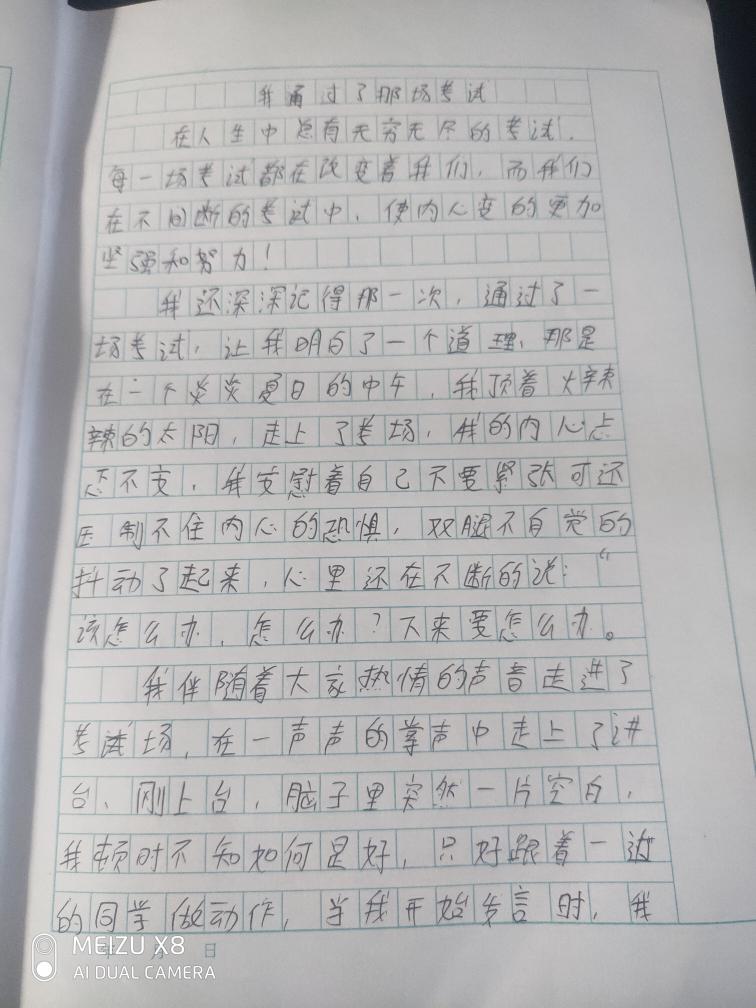 我通过了那场考试
在人生中总有无穷无尽的考试.
每一场考试都在改变着我们,而我们
在不间断的考试中,使内心变的更加
坚强和努力!
我还深深记得那一次,通过了一
场考试,让我明白了一个道理,那是
在一个炎炎夏日的中午,我顶着火辣
辣的太阳,走上了考场,我的内心忐
忑不安,我安慰着自己不要紧张可还
压制不住内心的恐惧,双腿不自觉的
抖动了起来,心里还在不断的说:“
该怎么办,怎么办?下来要怎么办。
我伴随着大家热情的声音走进了
考试场,在一声声的掌声中走上了讲
台、刚上台,脑子里突然一片空白,
我顿时不知如何是好,只好跟着一边
的同学做动作,当我开始发言时,我
年 月 日
MEIZU X8
AI DUAL CAMERA